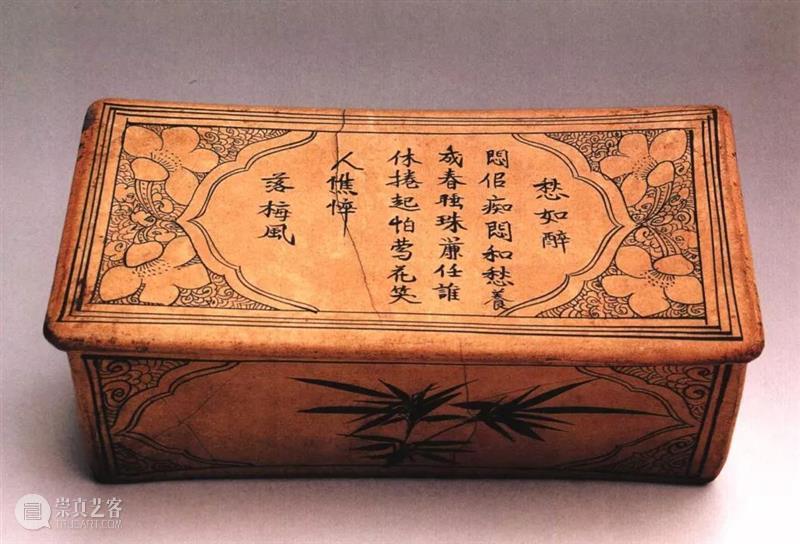 愁如醉
悶佀痴悶和愁養
成春睡珠簾任誰
休捲起怕莺花笑
人憔悴
落梅風
崇真艺客
TRUEART.COM